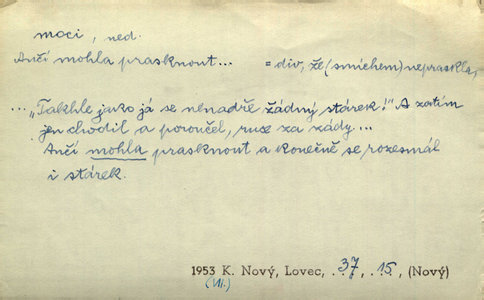 moci, ned.
Ančí mohla prasknout... = div, že (smíchem) nepraskla,
... „Takhle jako já se nenadře žádný stárek!" A zatím
jen chodil a poroučel, ruce za zády...
Ančí mohla prasknout a konečně se rozesmál
i stárek.
1953 K. Nový, Lovec, . 37 , . 15 , (Nový)
(VII.)